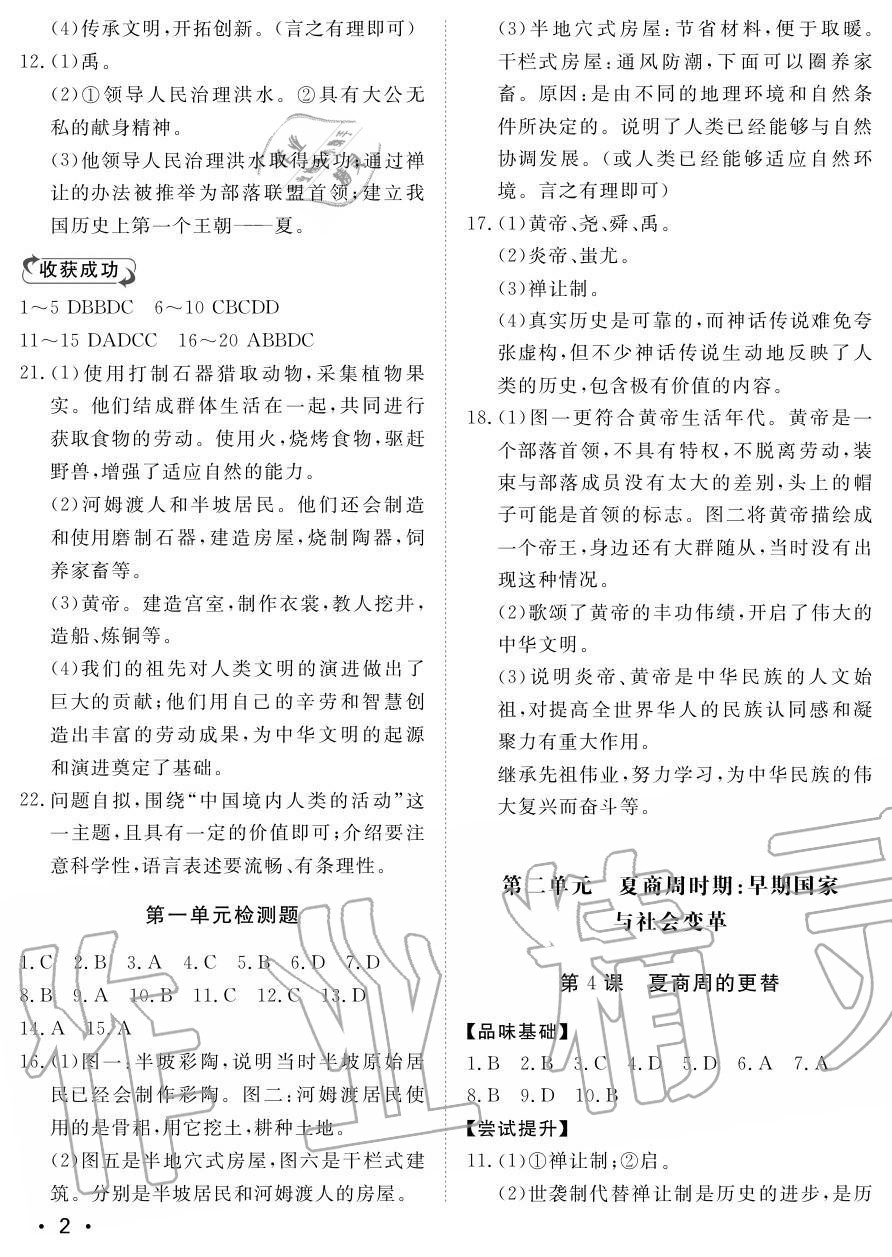 (4)传承文明,开拓创新。(言之有理即可)
12.(1)禹。
(2)①领导人民治理洪水。②具有大公无
私的献身精神。
(3)他领导人民治理洪水取得成功;通过禅
让的办法被推举为部落联盟首领;建立我
国历史上第一个王朝——夏。
收获成功
1～5 DBBDC 6～10 CBCDD
11～15 DADCC 16～20 ABBDC
21.(1)使用打制石器猎取动物,采集植物果
实。他们结成群体生活在一起,共同进行
获取食物的劳动。使用火,烧烤食物,驱赶
野兽,增强了适应自然的能力。
(2)河姆渡人和半坡居民。他们还会制造
和使用磨制石器,建造房屋,烧制陶器,饲
养家畜等。
(3)黄帝。建造宫室,制作衣裳,教人挖井,
造船、炼铜等。
(4)我们的祖先对人类文明的演进做出了
巨大的贡献;他们用自己的辛劳和智慧创
造出丰富的劳动成果,为中华文明的起源
和演进奠定了基础。
22.问题自拟,围绕“中国境内人类的活动”这
一主题,且具有一定的价值即可;介绍要注
意科学性,语言表述要流畅、有条理性。
第一单元检测题
1.C 2.B 3.A 4.C 5.B 6.D 7.D
8.B 9.A 10.B 11.C 12.C 13.D
14.A 15.A
16.(1)图一:半坡彩陶,说明当时半坡原始居
民已经会制作彩陶。图二:河姆渡居民使
用的是骨耜,用它挖土,耕种土地。
(2)图五是半地穴式房屋,图六是干栏式建
筑。分别是半坡居民和河姆渡人的房屋。
(3)半地穴式房屋:节省材料,便于取暖。
干栏式房屋:通风防潮,下面可以圈养家
畜。原因:是由不同的地理环境和自然条
件所决定的。说明了人类已经能够与自然
协调发展。(或人类已经能够适应自然环
境。言之有理即可)
17.(1)黄帝、尧、舜、禹。
(2)炎帝、蚩尤。
(3)禅让制。
(4)真实历史是可靠的,而神话传说难免夸
张虚构,但不少神话传说生动地反映了人
类的历史,包含极有价值的内容。
18.(1)图一更符合黄帝生活年代。黄帝是一
个部落首领,不具有特权,不脱离劳动,装
束与部落成员没有太大的差别,头上的帽
子可能是首领的标志。图二将黄帝描绘成
一个帝王,身边还有大群随从,当时没有出
现这种情况。
(2)歌颂了黄帝的丰功伟绩,开启了伟大的
中华文明。
(3)说明炎帝、黄帝是中华民族的人文始
祖,对提高全世界华人的民族认同感和凝
聚力有重大作用。
继承先祖伟业,努力学习,为中华民族的伟
大复兴而奋斗等。
第二单元 夏商周时期:早期国家
与社会变革
第4课 夏商周的更替
【品味基础】
1.B 2.B 3.C 4.D 5.D 6.A 7.A
8.B 9.D 10.B
【尝试提升】
11.(1)①禅让制;②启。
(2)世袭制代替禅让制是历史的进步,是历
• 2 •
作业精灵